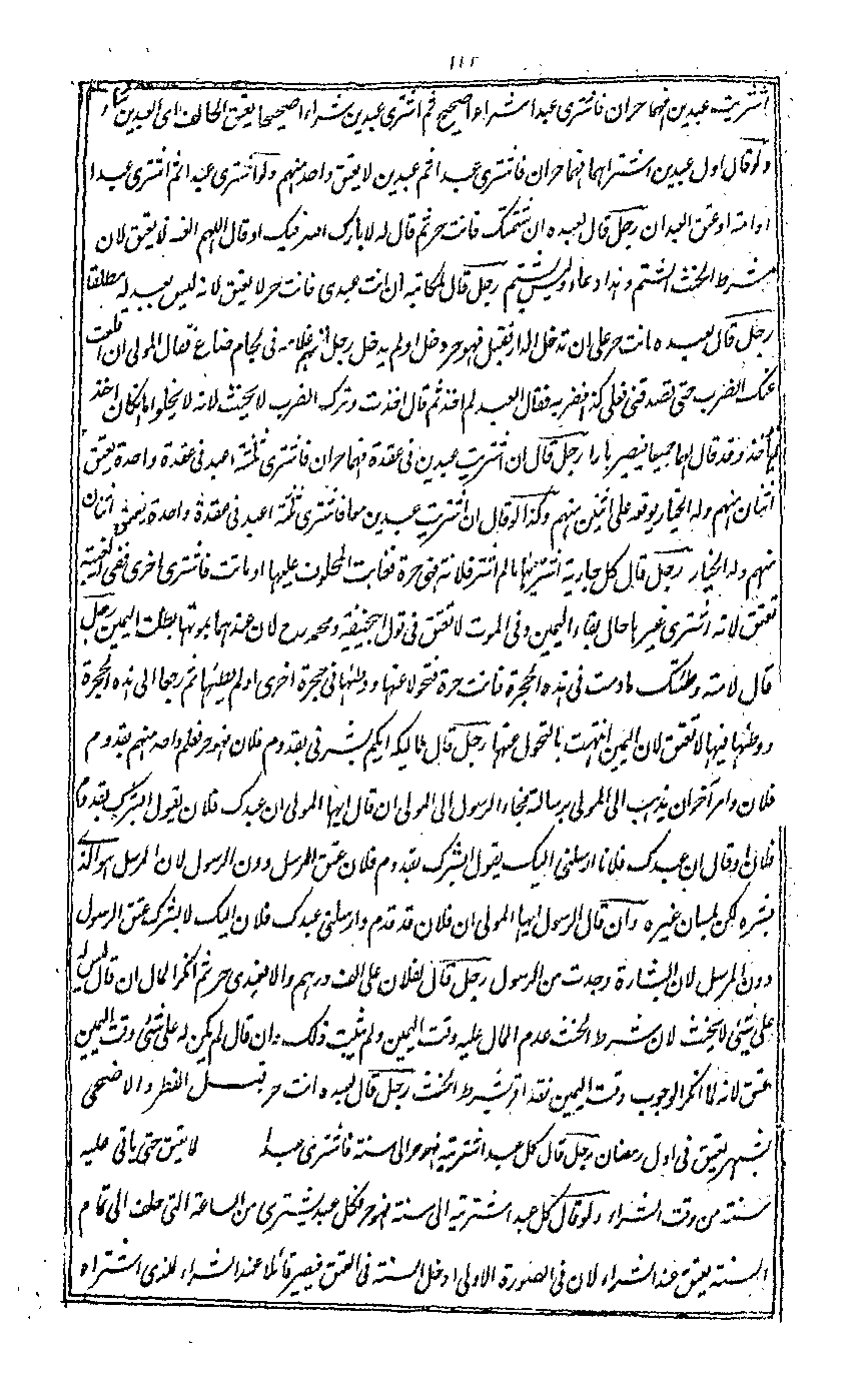 ١١٢
اشتريت عبدين فهما حران فاشترى عبدا شراء اصحيح ثم اشترى عبدين شراء اصحيحا يعتق الحالف اى العبدين شاء
ولو قال اول عبدين اشتراهما فهما حران فاشترى عبدا ثم عبدين لا يعتق واحد منهم ولو اشترى عبدا ثم اشترى عبدا
او امة او عتق العبدان رجل قال لعبده ان شتمتك فانت حر ثم قال له لا بارك الله فيك او قال اللهم العنه لا يعتق لان
شرط الحنث الشتم وهذا دعاء وليس بشتم رجل قال لمكاتبه ان انت عبدى فانت حر لا يعتق لانه ليس بعبد له مطلقا
رجل قال لعبده انت حر على ان تدخل الدار فقبل فهو حر دخل او لم يدخل رجل اتهم غلامه فى لجام ضاع فقال المولى ان اقلعت
عنك الضرب حتى تصدقنى فعلى كذا فضربه فقال العبد لم آخذ ثم قال اخذت وترك الضرب لا يحنث لانه لا يخلوا اما كان اخذ
لم يأخذ وقد قالهما جميعا فيصير بارا رجل قال ان اشتريت عبدين فى عقدة فهما حران فاشترى ثلثة اعبد فى عقدة واحدة يعتق
اثنان منهم وله الخيار يوقعه على اثنين منهم وكذا لو قال ان اشتريت عبدين معا فاشترى ثلثة اعبد فى عقدة واحدة يعتق اثنان
منهم وله الخيار رجل قال كل جارية اشتريتها ما لم اشتر فلانة فهى حرة فغابت المحلوف عليها او ماتت فاشترى اخرى ففى الغيبة
تعتق لانه اشترى غيرها حال بقاء اليمين وفى الموت لا تعتق فى قول ابيحنيفة ومحمد رح لان عندهما بموتها بطلت اليمين رجل
قال لامته وطئتك ما دمت فى هذه الحجرة فانت حرة فتحولا عنها ووطئها فى حجرة اخرى او لم يطئها ثم رجعا الى هذه الحجرة
ووطئها فيها لا تعتق لان اليمين انتهت بالتحول عنها رجل قال لمماليكه ايكم بشرنى بقدوم فلان فهو حر فعلم واحد منهم بقدوم
فلان وامر آخر ان يذهب الى المولى برسالته فجاء الرسول الى المولى ان قال ايها المولى ان عبدك فلان يقول ابشرك بقدوم
فلان او قال ان عبدك فلانا ارسلنى اليك يقول ابشرك بقدوم فلان عتق المرسل دون الرسول لان المرسل هو الذى
بشره لكن بلسان غيره وان قال الرسول ايها المولى ان فلان قد قدم وارسلنى عبدك فلان اليك لابشرك عتق الرسول
دون المرسل لان البشارة وجدت من الرسول رجل قال لفلان على الف درهم والا فعبدى حر ثم انكر المال ان قال ليس له
على شيئى لا يحنث لان شرط الحنث عدم المال عليه وقت اليمين ولم يثبت ذلك وان قال لم يكن له على شيئى وقت اليمين
عتق لانه لما انكر الوجوب وقت اليمين فقد اقر بشرط الحنث رجل قال لعبده انت حر قبل الفطر والاضحى
بشهر يعتق فى اول رمضان رجل قال كل عبد اشتريته فهو حر الى سنة فاشترى عبدا لا يعتق حتى ياتى عليه
سنة من وقت الشراء ولو قال كل عبد اشتريته الى سنة فهو حر فكل عبد يشترى من الساعة التى حلف الى تمام
السنة يعتق عند الشراء لان فى الصورة الاولى ادخل السنة فى العتق فيصير قائلا عند الشراء للذى اشتراه